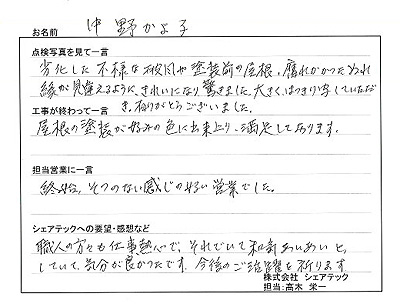 お名前 中野かよ子
点検写真を見て一言
劣化した不様な破風や塗装前の屋根、腐れかかったぬれ
縁が見違えるように、きれいになり驚きました。大きく、はっきり写していただ
き、ありがとうございました。
工事が終わって一言
屋根の塗装が好みの色に出来上り、満足しております。
担当営業に一言
終始、そつのない感じの好い営業でした。
シェアテックへの要望・感想など
職人の方々も仕事熱心で、それでいて和気あいあいと
していて、気分が良かったです。今後のご活躍を祈ります。
株式会社 シェアテック
担当:高木 栄一